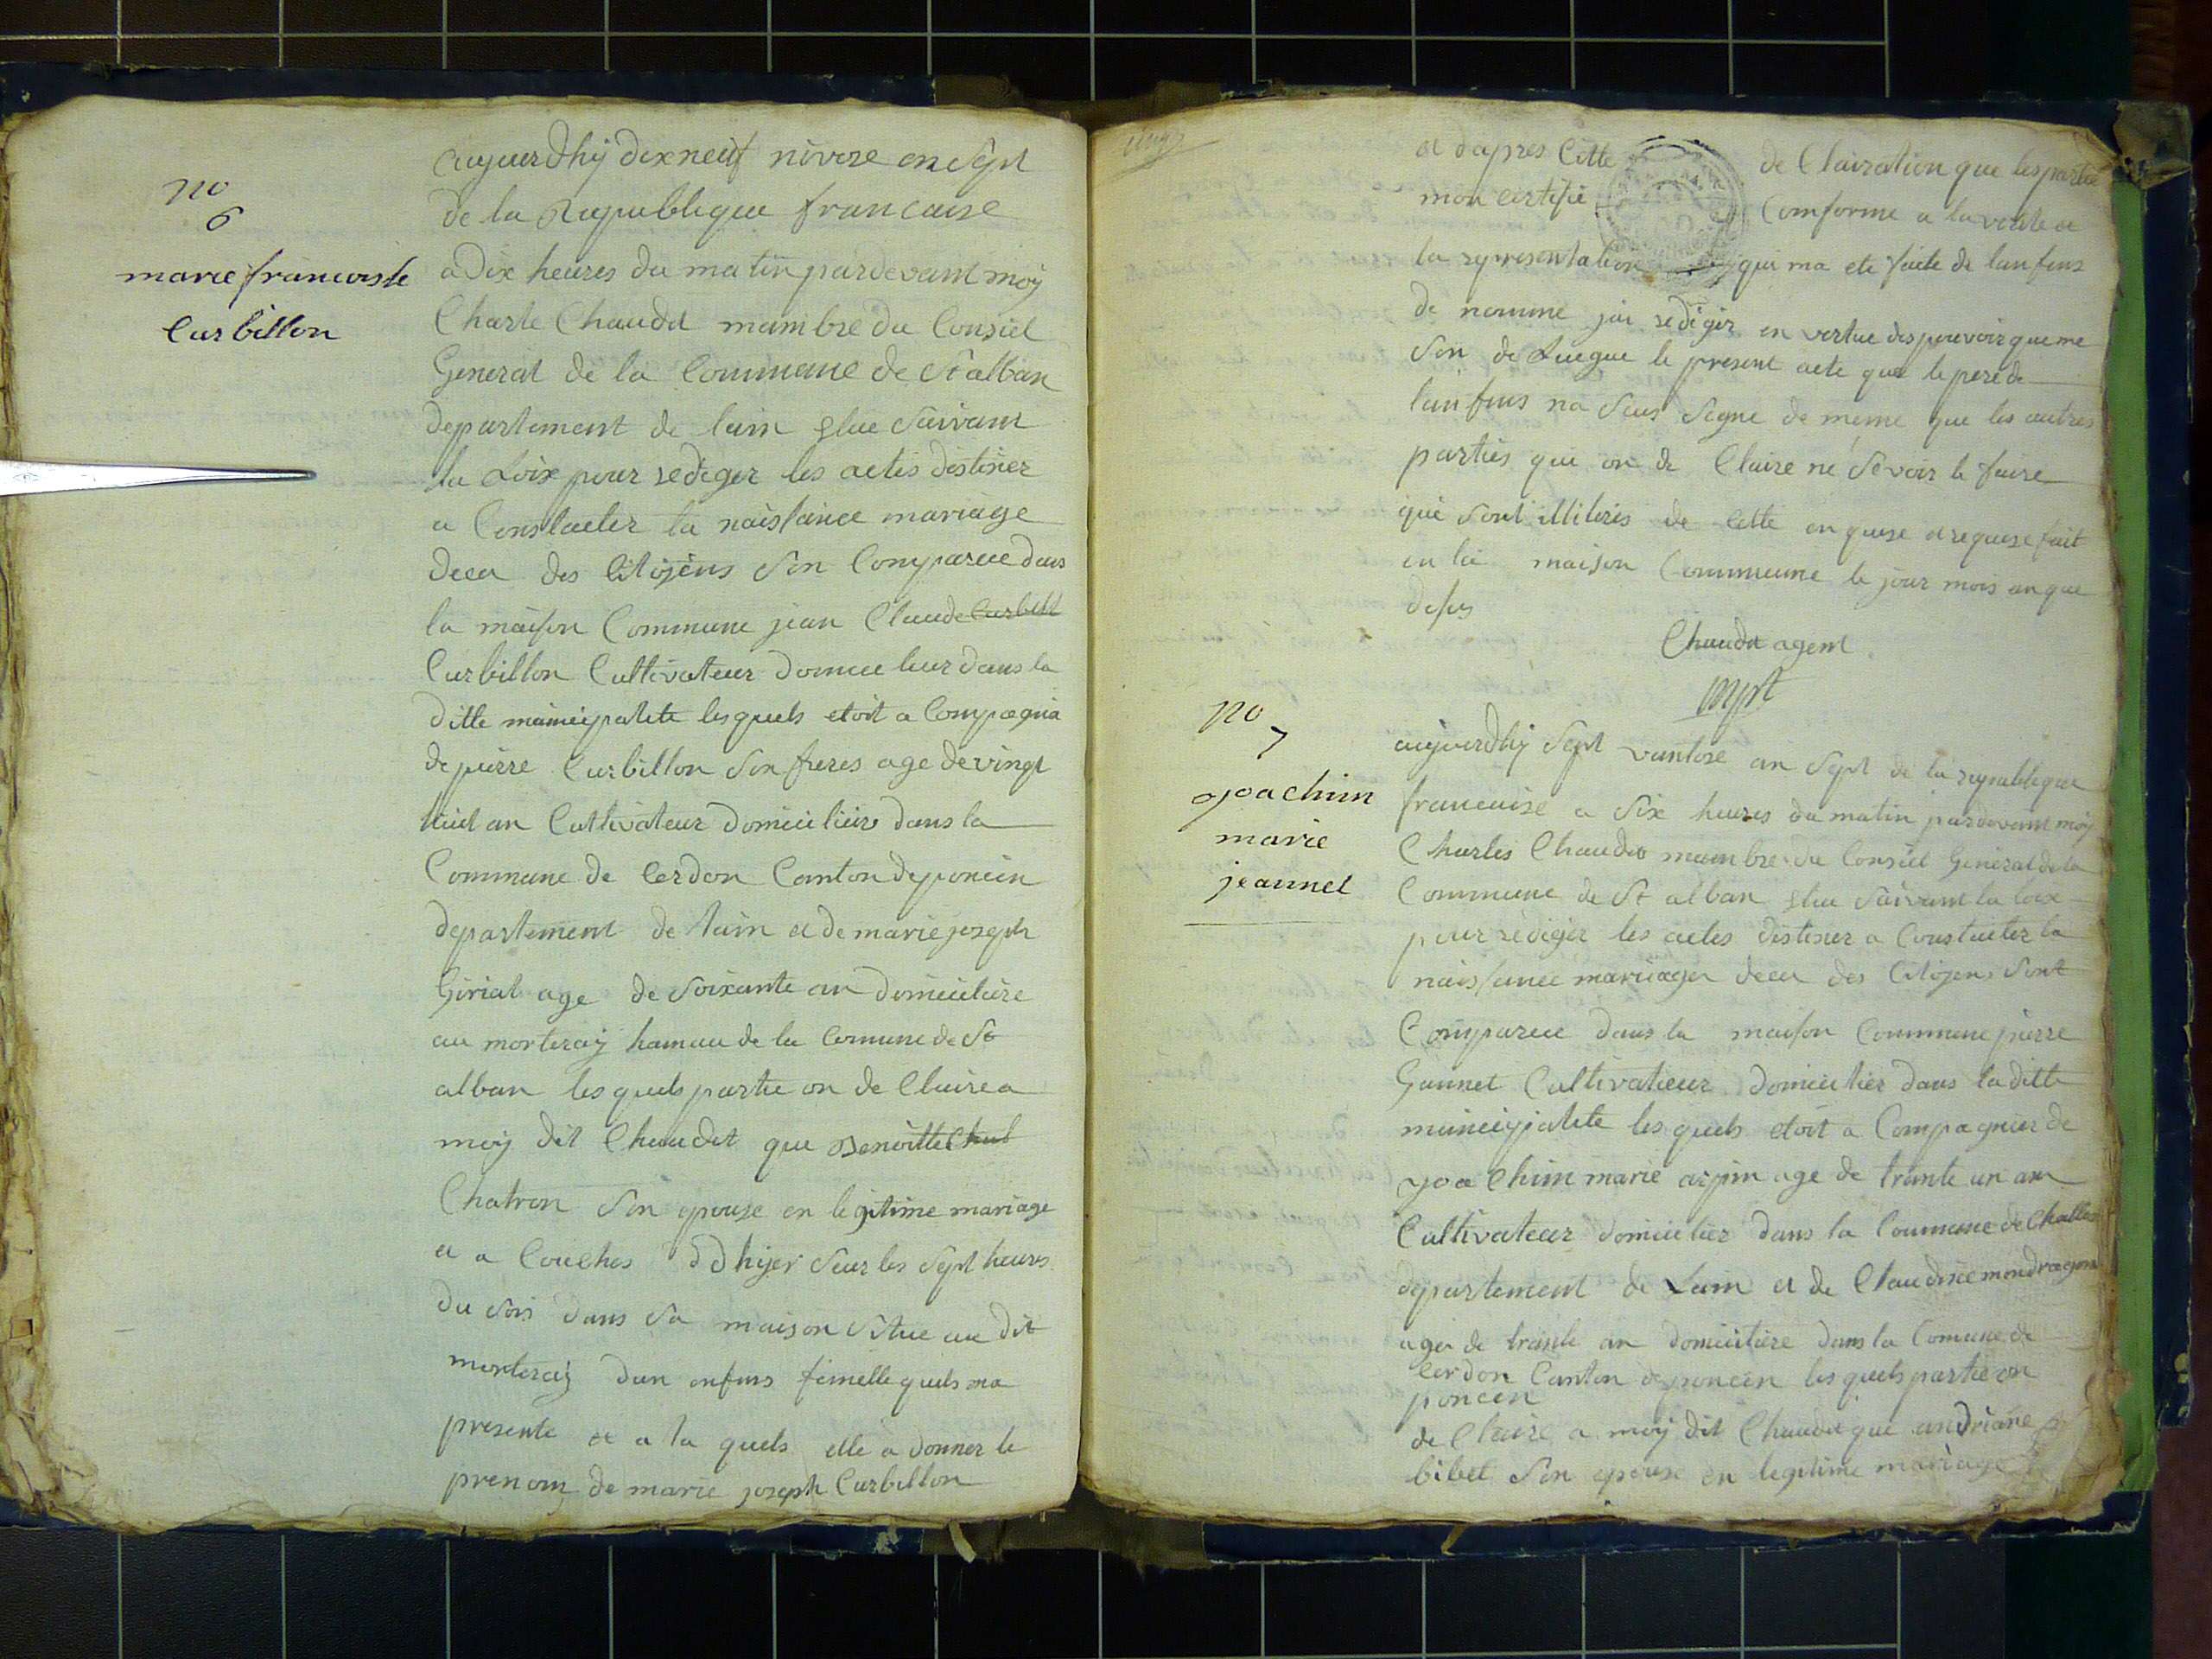 no
6
marie francoise
Curbillon
aujourdhÿ dixneuf nivose en sept
de la Republique francaise
a Dix heures du matin pardevant moÿ
Charle Chaudet mambre du Consiel
General de la Commune de St alban
departement de lain elue Suivant
la Loix pour rediger les actes distinés
a Constaeter la naissance mariage
decer des Citojens Son Comparue dans
la maison Commune jean Claude Curbill
Curbillon Cultivateur domicilier dans la
ditte municipalite les quels etoit a Compagnia
de pierre Curbillon Son freres age de vingt
huit an Cultivateur domicilier dans la
Commune de Cerdon Canton de poncin
departement de lain et de marie joseph
Giriat age de Soixante an domiciliere
au morteraÿ hamau de la Comune de St
alban les quels partie on de Claire a
moÿ dit Chaudet que Benoitte Chat
Chatron Son epouse en legitime mariage
et a Couches d dhijer Seur les Sept heures
du Soir dans Sa maison Situe au dit
morteraÿ dun enfens fimelle quels ma
presente et a la quels elle a donner le
prenom de marie joseph Curbillon
et dapres Citte de Clairation que les partie
mon certifie Comforme a la verite et
la representation qui ma ete faite de lenfens
de nomme jai rediger en vertue des pouvoir que me
Son de Luegue le present acte que le pere de
lanfens na Seus Signe de même que les autres
parties qui on de Claire ne Sevoir le faire
qui Sont illiteris de Cette enquise et requise fait
en la maison Commeune le jour mois an que
desus
Chaudet agent
no
7
joachim
marie
jeannet
aujourdhÿ Sept vantose an Sept de la republique
francaise a Six heures du matin pardevant moÿ
Charles Chaudet mambre du Consiel General de la
Commune de St alban elue Suivant la loix
pour rediger les actes distiner a Constaeter la
naissance mariager decer des Citojens Sont
Comparue dans la maison Commune pierre
Gannet Cultivatieur domicilier dans la ditte
municipalite les quels etoit a Compagnier de
joa Chim marie arpin age de trante un an
Cultivateur domicilier dans la Commune de Challes
departement de Lain et de Claudine mondragon
ager de trante an domiciliere dans la Comune de
Cerdon Canton de poncin les quels partie on
poncin
de Claire a moÿ dit Chaudet que andriane
bibet Son epouse en legitime mariage